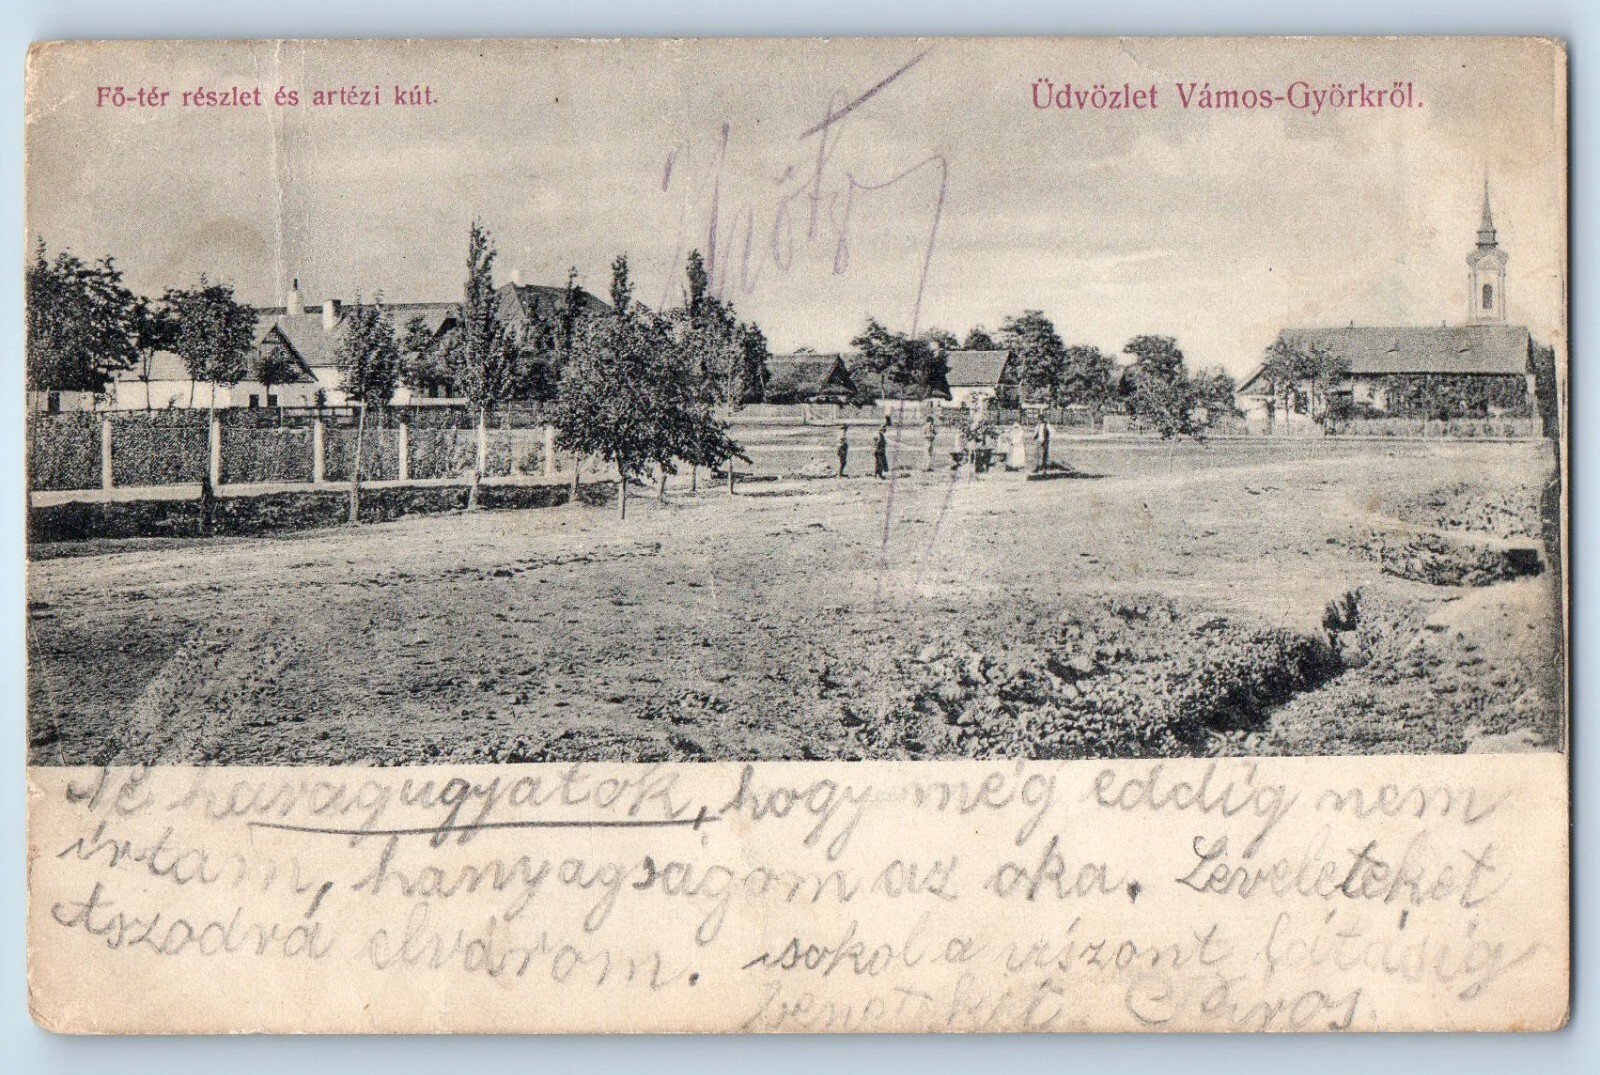 Fő-tér részlet és artézi kút.
Üdvözlet Vámos-Györkről.
Ne haragugyatok, hogy még eddig nem
írtam, hanyagságom az oka. Leveleteket
szodrá elvárom. csokol a viszont látásig
beneteket Piros.